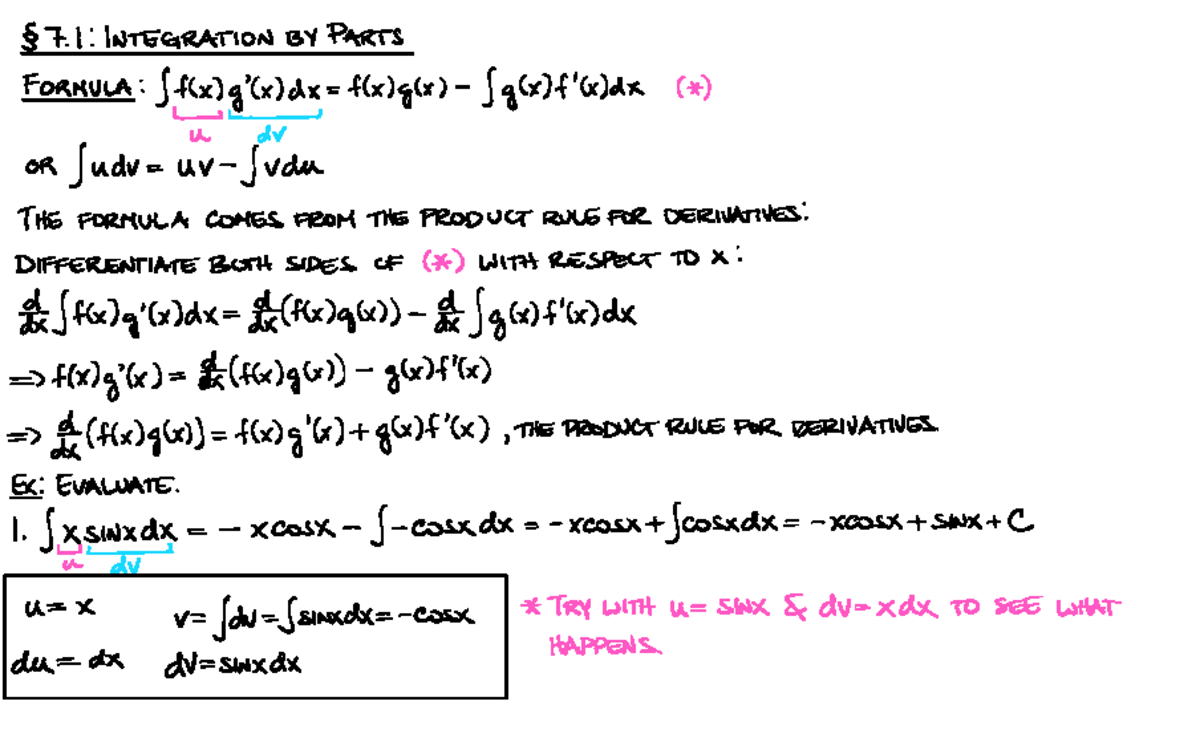 §7.1: INTEGRATION BY PARTS
FORMULA: ∫f(x)g'(x)dx = f(x)g(x) - ∫g(x)f'(x)dx (*)
u dv
OR ∫udv = uv - ∫vdu
THE FORMULA COMES FROM THE PRODUCT RULE FOR DERIVATIVES:
DIFFERENTIATE BOTH SIDES OF (*) WITH RESPECT TO X:
d/dx ∫f(x)g'(x)dx = d/dx (f(x)g(x)) - d/dx ∫g(x)f'(x)dx
=> f(x)g'(x) = d/dx (f(x)g(x)) - g(x)f'(x)
=> d/dx (f(x)g(x)) = f(x)g'(x) + g(x)f'(x), THE PRODUCT RULE FOR DERIVATIVES.
EX: EVALUATE.
1. ∫xsinxdx = -xcosx - ∫-cosxdx = -xcosx + ∫cosxdx = -xcosx + sinx + C
u dv
u = x v = ∫dv = ∫sinxdx = -cosx
du = dx dv = sinxdx
* TRY WITH u = sinx & dv = xdx TO SEE WHAT
HAPPENS.